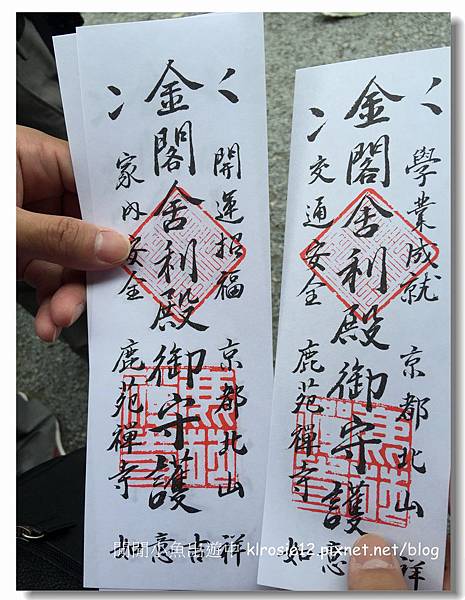 開運招福 京都北山
金閣舍利殿御守護
家内安全 鹿苑禪寺
如意吉祥
學業成就 京都北山
金閣舍利殿御守護
交通安全 鹿苑禪寺
如意 祥
小魚出遊中 klrosie12.pixnet.net/blog